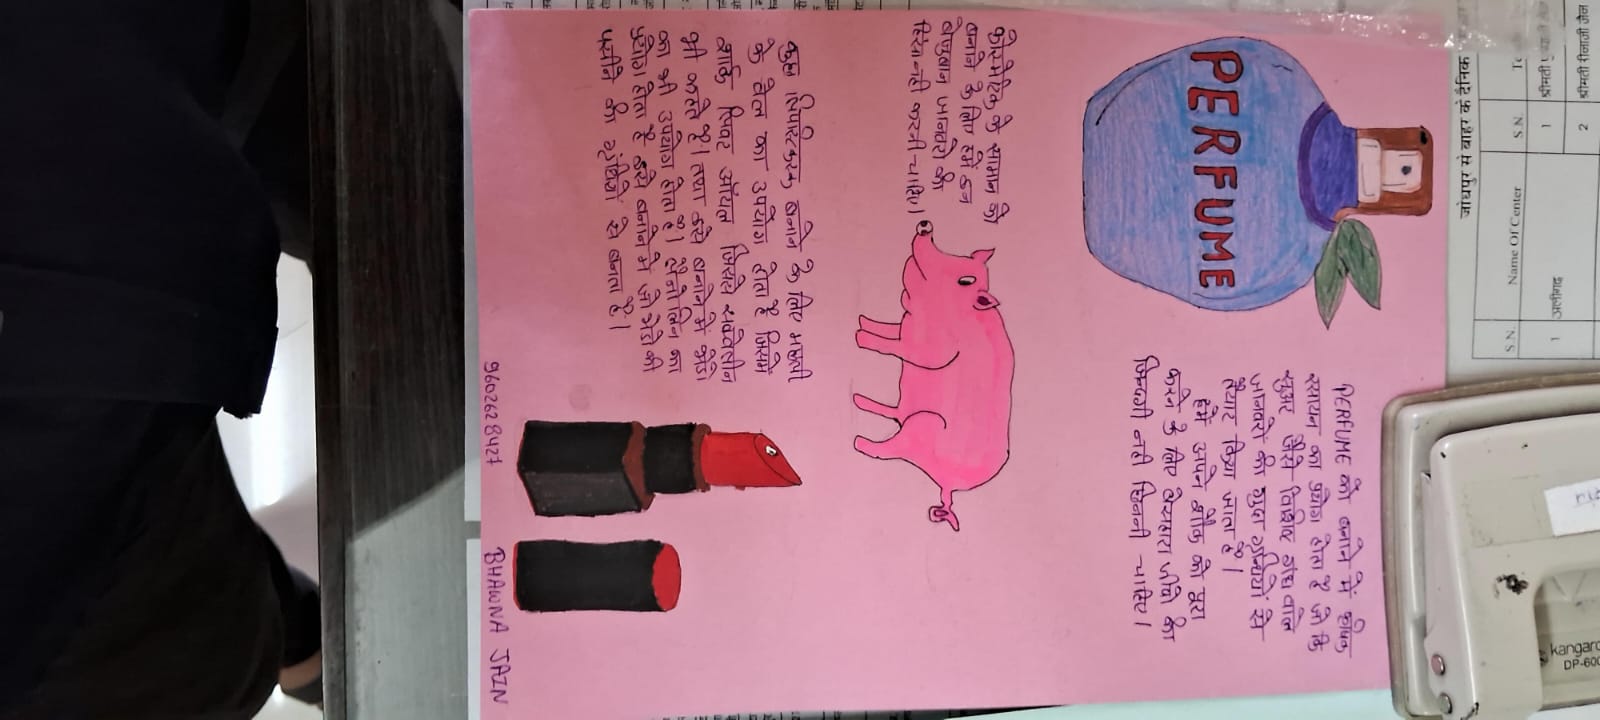 PERFUME
PERFUME को बनाने में कृत्रिम
रसायन का प्रयोग होता है जो कि
सुअर जैसे विशिष्ट गंध वाले
जानवरों की गुदा ग्रन्थियों से
तैयार किया जाता है।
हमें अपने शौक को पूरा
करने के लिए बेसहारा जीवो का
जिन्दगी नही छिननी चाहिए।
कोस्मेटिक के सामान को
बनाने के लिए हमें इन
बेजुबान जानवरो की
हिंसा नही करनी चाहिए।
कुछ लिपस्टिक बनाने के लिए मछली
के तेल का उपयोग होता है जिसमे
शार्क लिवर ऑयल जिसे स्क्वेलीन
भी कहते है। तथा इसे बनाने मे
का भी उपयोग होता है। लेनोलिन का
प्रयोग होता है इसे बनाने मे जो भेड़ो की
पसीने की ग्रंथियों से बनता है।
9602628427
BHAWNA JAIN
जोधपुर से बाहर के दैनिक
S.N.
Name Of Center
S.N.
1
अलीगढ
1
श्रीमती
2
श्रीमती रीनाजी जैन
kangaro
DP-600